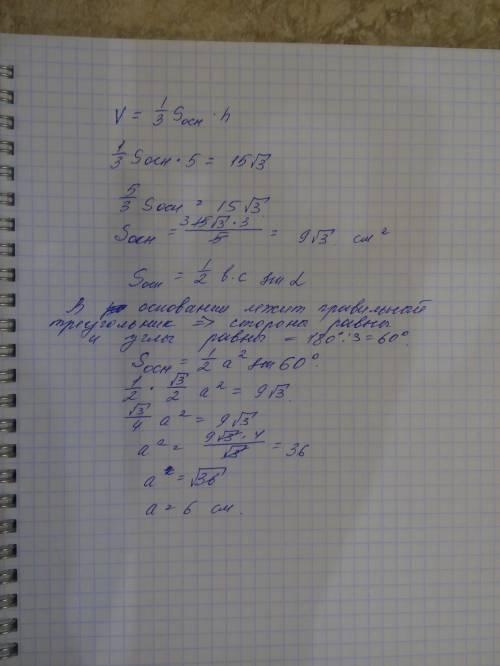 V = 1/3 Sосн · h
1/3 Sосн · 5 = 15√3
5/3 Sосн = 15√3
Sосн = 3 15√3 · 3 / 5 = 9√3 см²
Sосн = 1/2 в·с sin α
В основании лежит правильный
треугольник => стороны равны
и углы равны = 180°:3=60°.
Sосн = 1/2 a² sin 60°.
1/2 · √3/2 a² = 9√3.
√3/4 a² = 9√3
a² = 9√3 · 4 / √3 = 36
a = √36
a = 6 см.